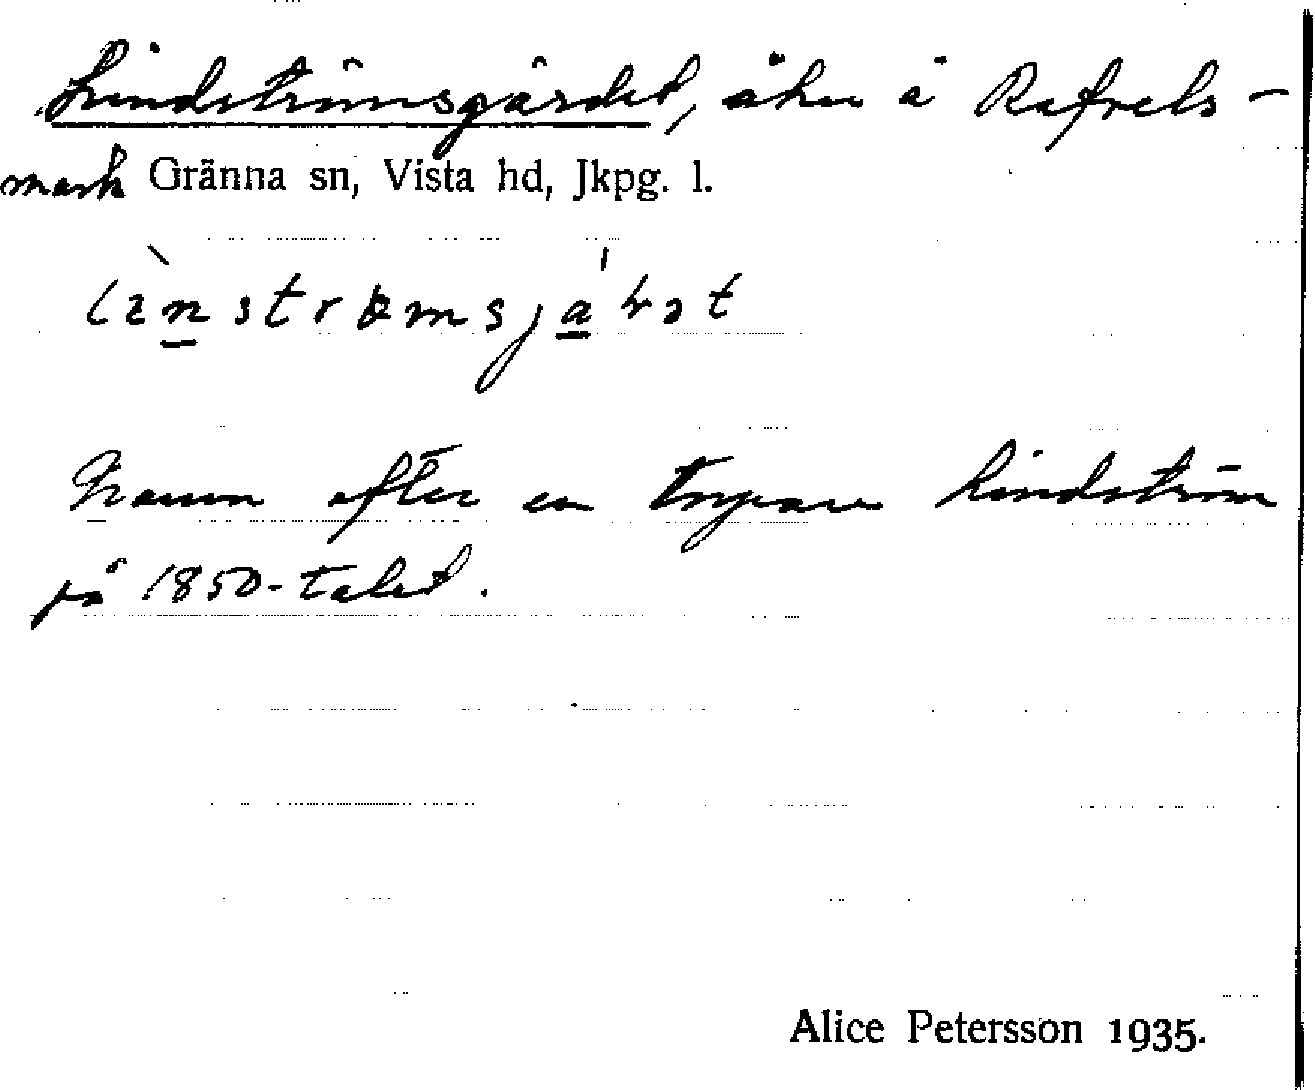 Lindströmsgärdet, åker å Rafvels-
mark Gränna sn, Vista hd, Jkpg. l.
Namn efter en torpare Lindström
på 1850-talet.
Alice Petersson 1935.